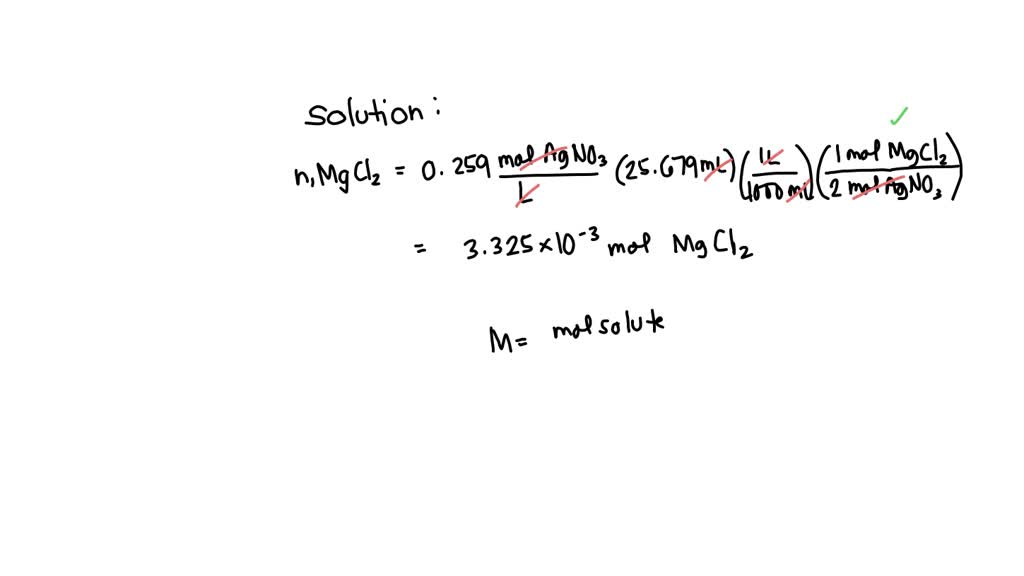 Solution:
n, MgCl₂ = 0.259 mol AgNO₃/L (25.679 mL) (1L/1000 mL) (1 mol MgCl₂/2 mol AgNO₃)
= 3.325×10⁻³ mol MgCl₂
M = mol solute